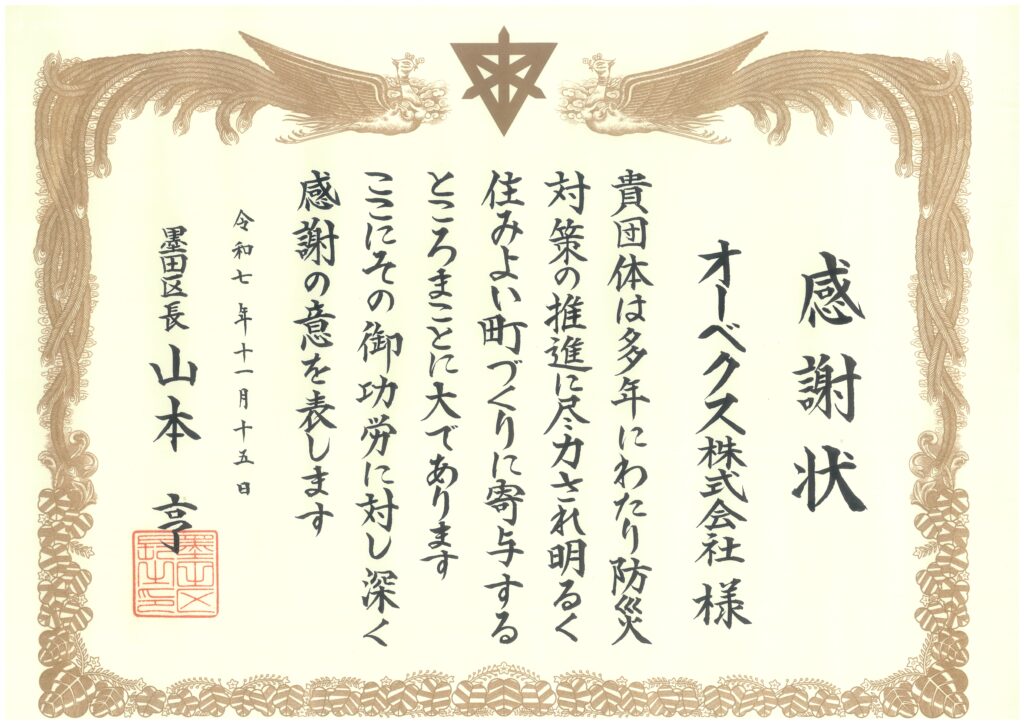 感謝状
オーベクス株式会社 様
貴団体は多年にわたり防災
対策の推進に尽力され明るく
住みよい町づくりに寄与する
ところまことに大であります
ここにその御功労に対し深く
感謝の意を表します
令和七年十一月十五日
墨田区長 山本 亨